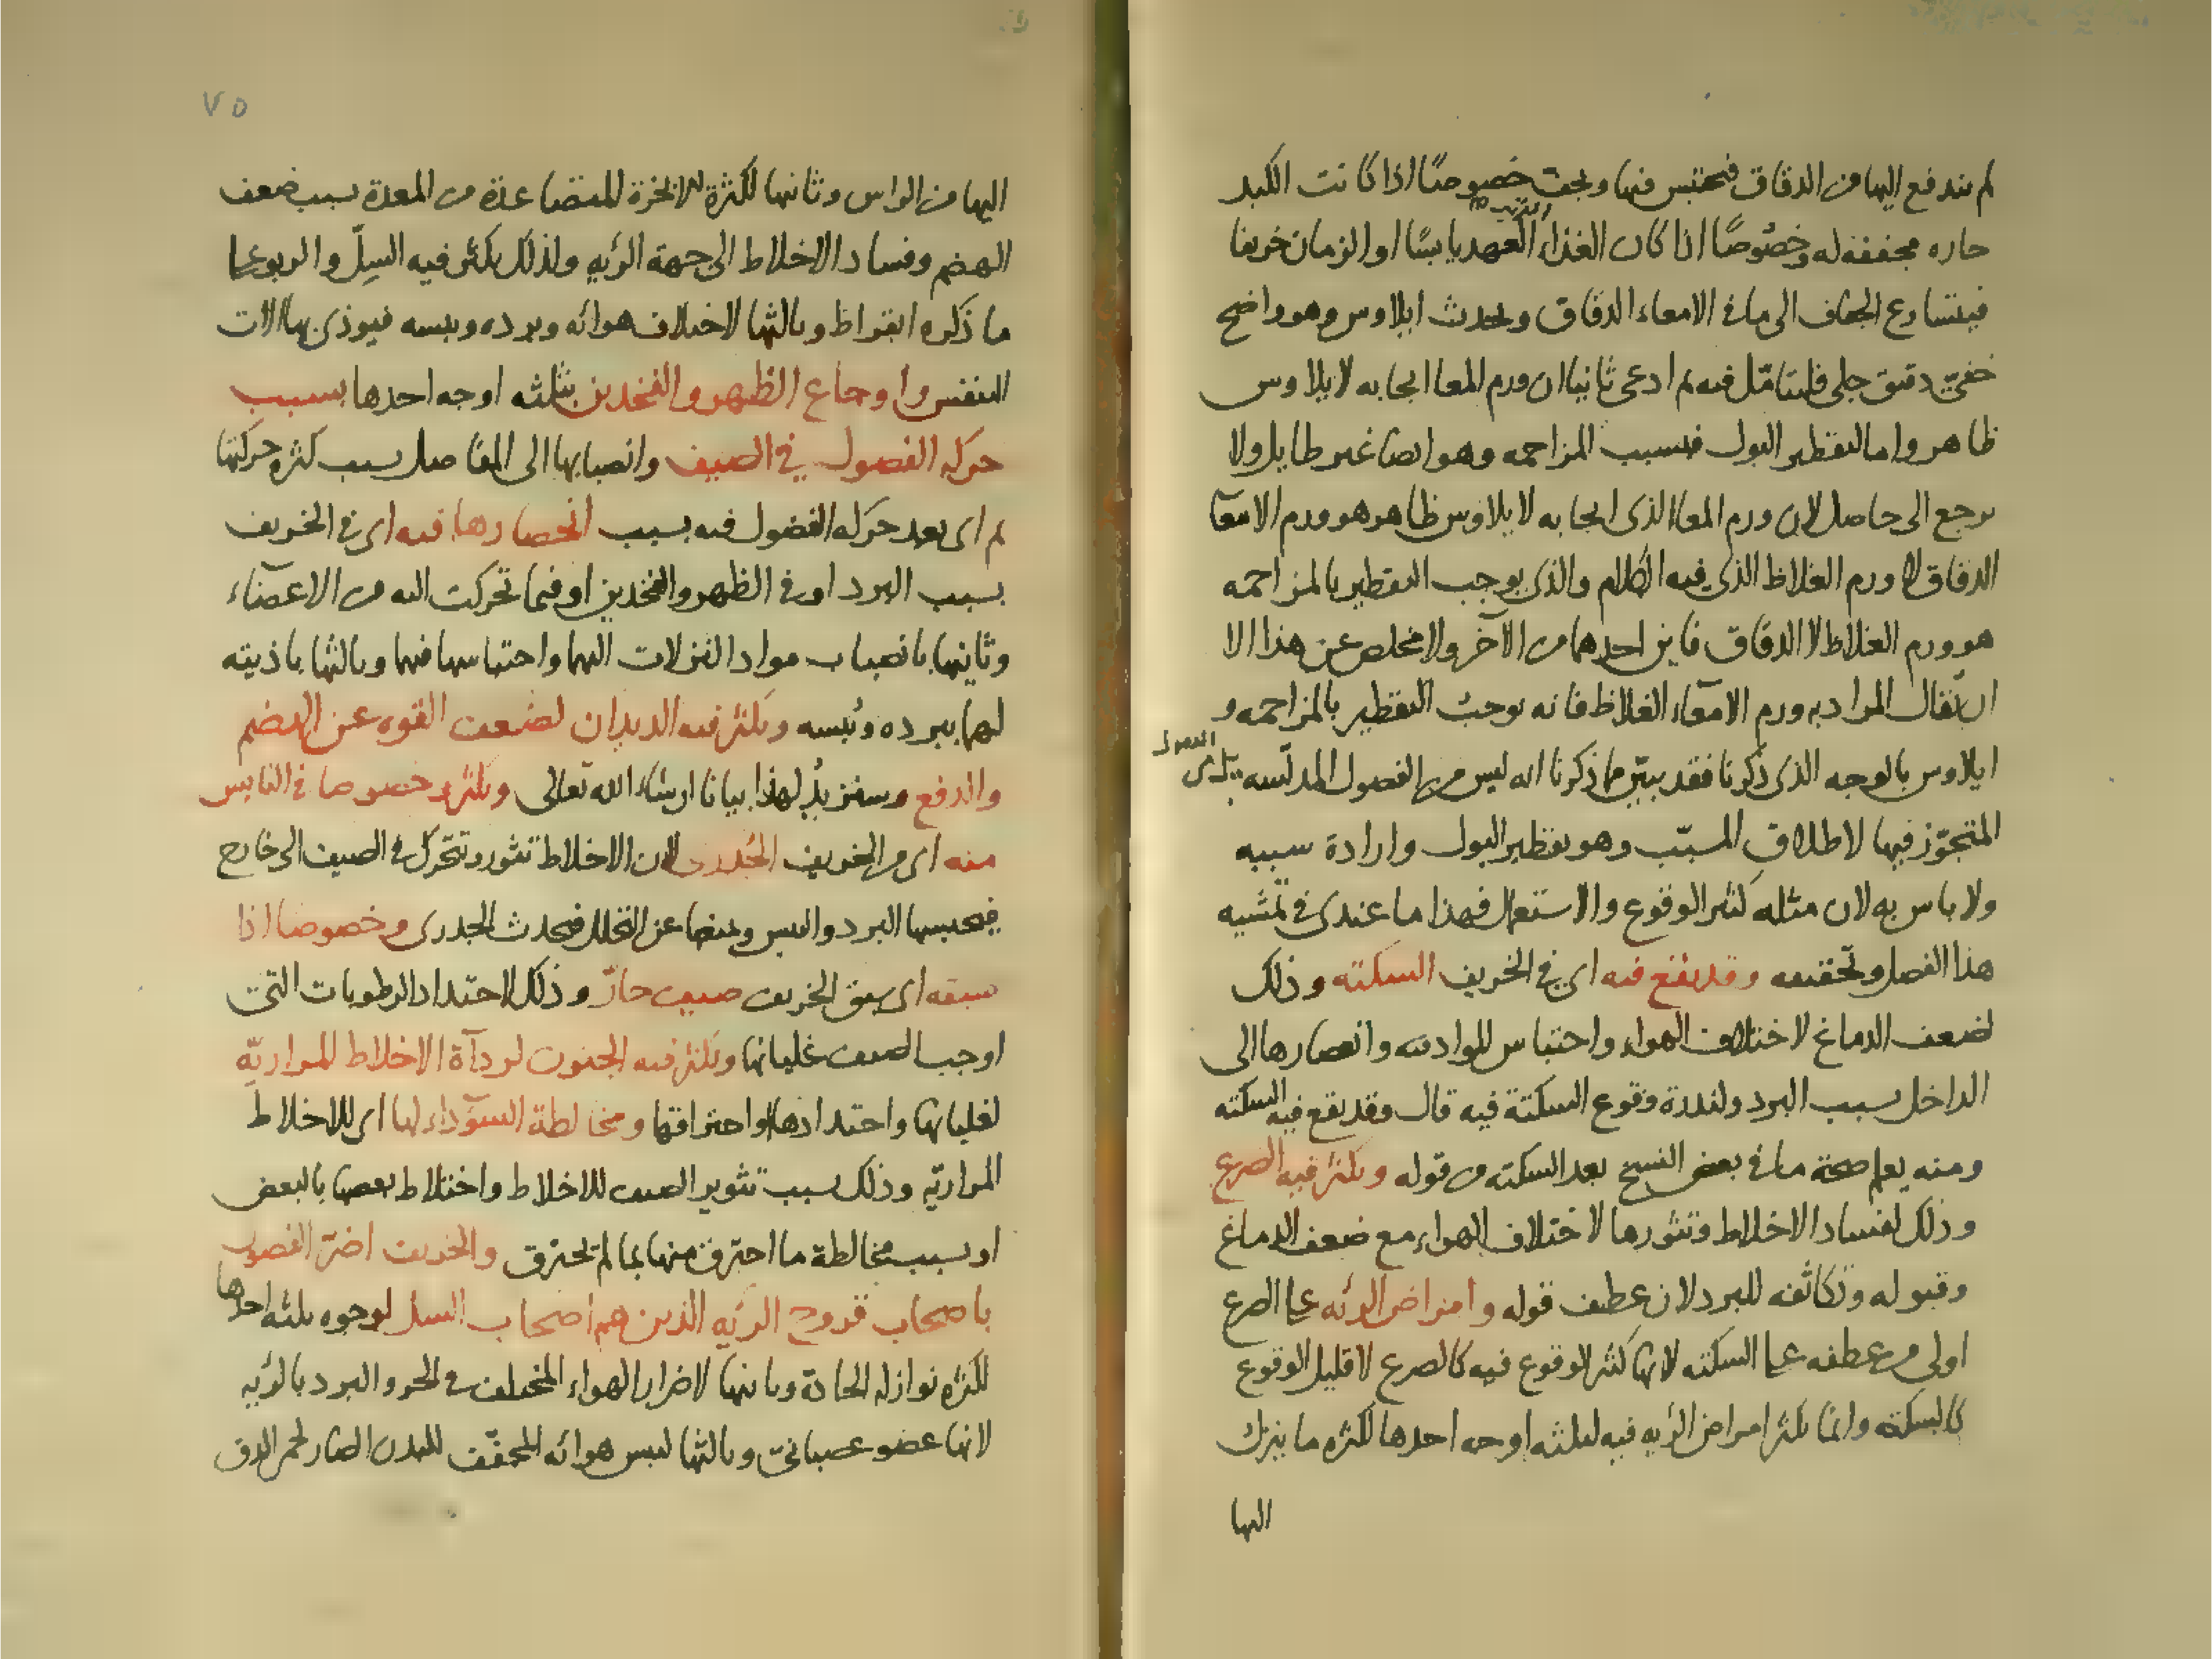 لم يندفع اليها من الدقاق فتحتبس فيها وبجت خصوصًا اذا كانت الكبد
حاره مجففة له وخصوصًا اذا كان الغذاء القريب العهد يابسًا او الزمان خريفا
فيتسارع الجفاف الى ما في الامعاء الدقاق ويحدث ايلاوس وهو واضح
خفي دقيق جلي فليتامّل فيه ثم ادعى ثانيا ان ورم المعا ايجابه لايلاوس
ظاهر واما لتقطير البول فبسبب المزاحمه وهو ايضا غير طايل ولا
يرجع الى حاصل لان ورم المعا الذى ايجابه لايلاوس ظاهر هو ورم الامعآ
الدقاق لا ورم الغلاظ الذى فيه الكلام والذى يوجب التقطير بالمزاحمه
هو ورم الغلاظ لا الدقاق فاين احدهما من الآخر ولا مخلص عن هذا الا
ان يقال المراد به ورم الامعآء الغلاظ فانه يوجب التقطير بالمزاحمه و
ايلاوس بالوجه الذى ذكرنا فقد تبيّن مما ذكرنا انه ليس من الفصول المدلّسه
المتجوّز فيها لاطلاق المسبّب وهو تقطير البول وارادة سببه
ولا باس به لان مثله كثير الوقوع والاستعمال فهذا ما عندى في تمشيه
هذا الفصل وتحقيقه وقد يقع فيه اى في الخريف السكته وذلك
لضعف الدماغ لاختلاف الهواء واحتباس المواد فيه وانعصارها الى
الداخل بسبب البرد ولندرة وقوع السكتة فيه قال وقد يقع فيه السكته
ومنه يعلم صحة ما في بعض النسخ بعد السكته من قوله ويكثر فيه الصرع
وذلك لفساد الاخلاط وتثورها لاختلاف الهواء مع ضعف الدماغ
وقبوله وتكاثفه للبرد لان عطف قوله وامراض الرئه على الصرع
اولى من عطفه على السكته لانها كثير الوقوع فيه كالصرع لا قليل الوقوع
كالسكته وانما يكثر امراض الرئيه فيه لثلثه اوجه احدها لكثره ما ينزل
اليها
٧٥
اليها من الراس وثانيها لكثرة الابخرة المتصاعدة من المعدة بسبب ضعف
الهضم وفساد الاخلاط الى جهة الرئيه ولذلك يكثر فيه السِلّ والربو على
ما ذكره ابقراط وثالثها لاختلاف هوائه وبرده ويبسه فيوذى بها الات
التنفس واوجاع الظهر والفخدين بثلثه اوجه احدها بسبب
حركه الفصول في الصيف وانصبابها الى المفاصل بسبب كثره حركتها
ثم اى بعد حركه الفضول فيه بسبب انحصارها فيه اى في الخريف
بسبب البرد او في الظهر والفخدين او فيما تحركت اليه من الاعضآء
وثانيها بانصباب مواد النزلات اليهما واحتباسها فيهما وثالثها باذيته
لهما ببرده ويُبسه ويكثر فيه الديدان لضعف القوه عن الهضم
والدفع وسنزيد لهذا بيانا ان شاء الله تعالى ويكثر خصوصا في اليابس
منه اى من الخريف الجُدرى لان الاخلاط تثور وتتحرك في الصيف الى خارج
فيحبسها البرد واليبس ويمنعها عن التحلل فيحدث الجدرى وخصوصا اذا
سبقه اى سبق الخريف صيف حارّ وذلك لاحتداد الرطوبات التي
اوجب الصيف غليانها ويكثر فيه الجنون لردآة الاخلاط المراريّه
لغليانها واحتدادها واحتراقها ومخالطة السوّداء لها اى للاخلاط
المراريّه وذلك بسبب تثوير الصيف للاخلاط واختلاط بعضها بالبعض
او بسبب مخالطة ما احترق منها بما لم يحترق والخريف اضرّ الفصول
باصحاب قروح الرئه الذين هم اصحاب السل لوجوه ثلثه احدها
لكثره نوازله الحادة وثانيها لاضرار الهواء المختلف في الحر والبرد بالرئيه
لانها عضو عصباني وثالثها ليبس هوائه المجفّف للبدن الضار لحمى الدق